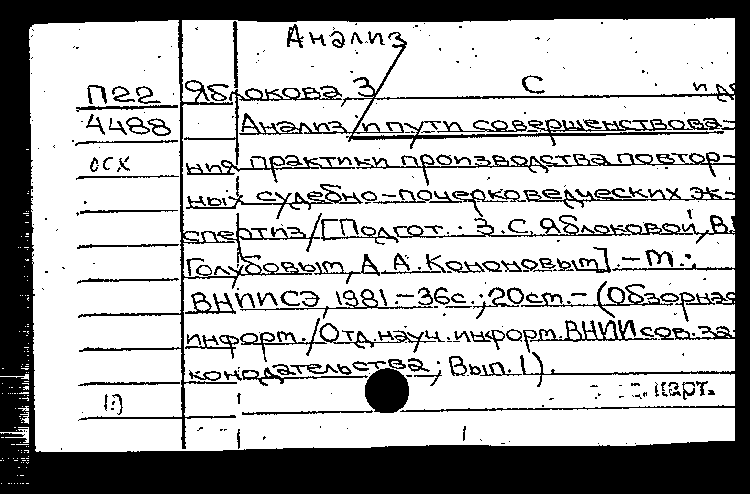 Анализ
П22 Яблокова, З С и др
4488 Анализ и пути совершенствова-
осх ния практики производства повтор-
ных судебно-почерковедческих эк-
спертиз/[Подгот.: З.С.Яблоковой, В.
Голубовым, А.А.Кононовым].-М.:
ВНИИСЭ, 1981.-36с.; 20см.-(Обзорная
информ./Отд.науч.информ.ВНИИ сов.за-
конодательства; Вып.1).
карт.